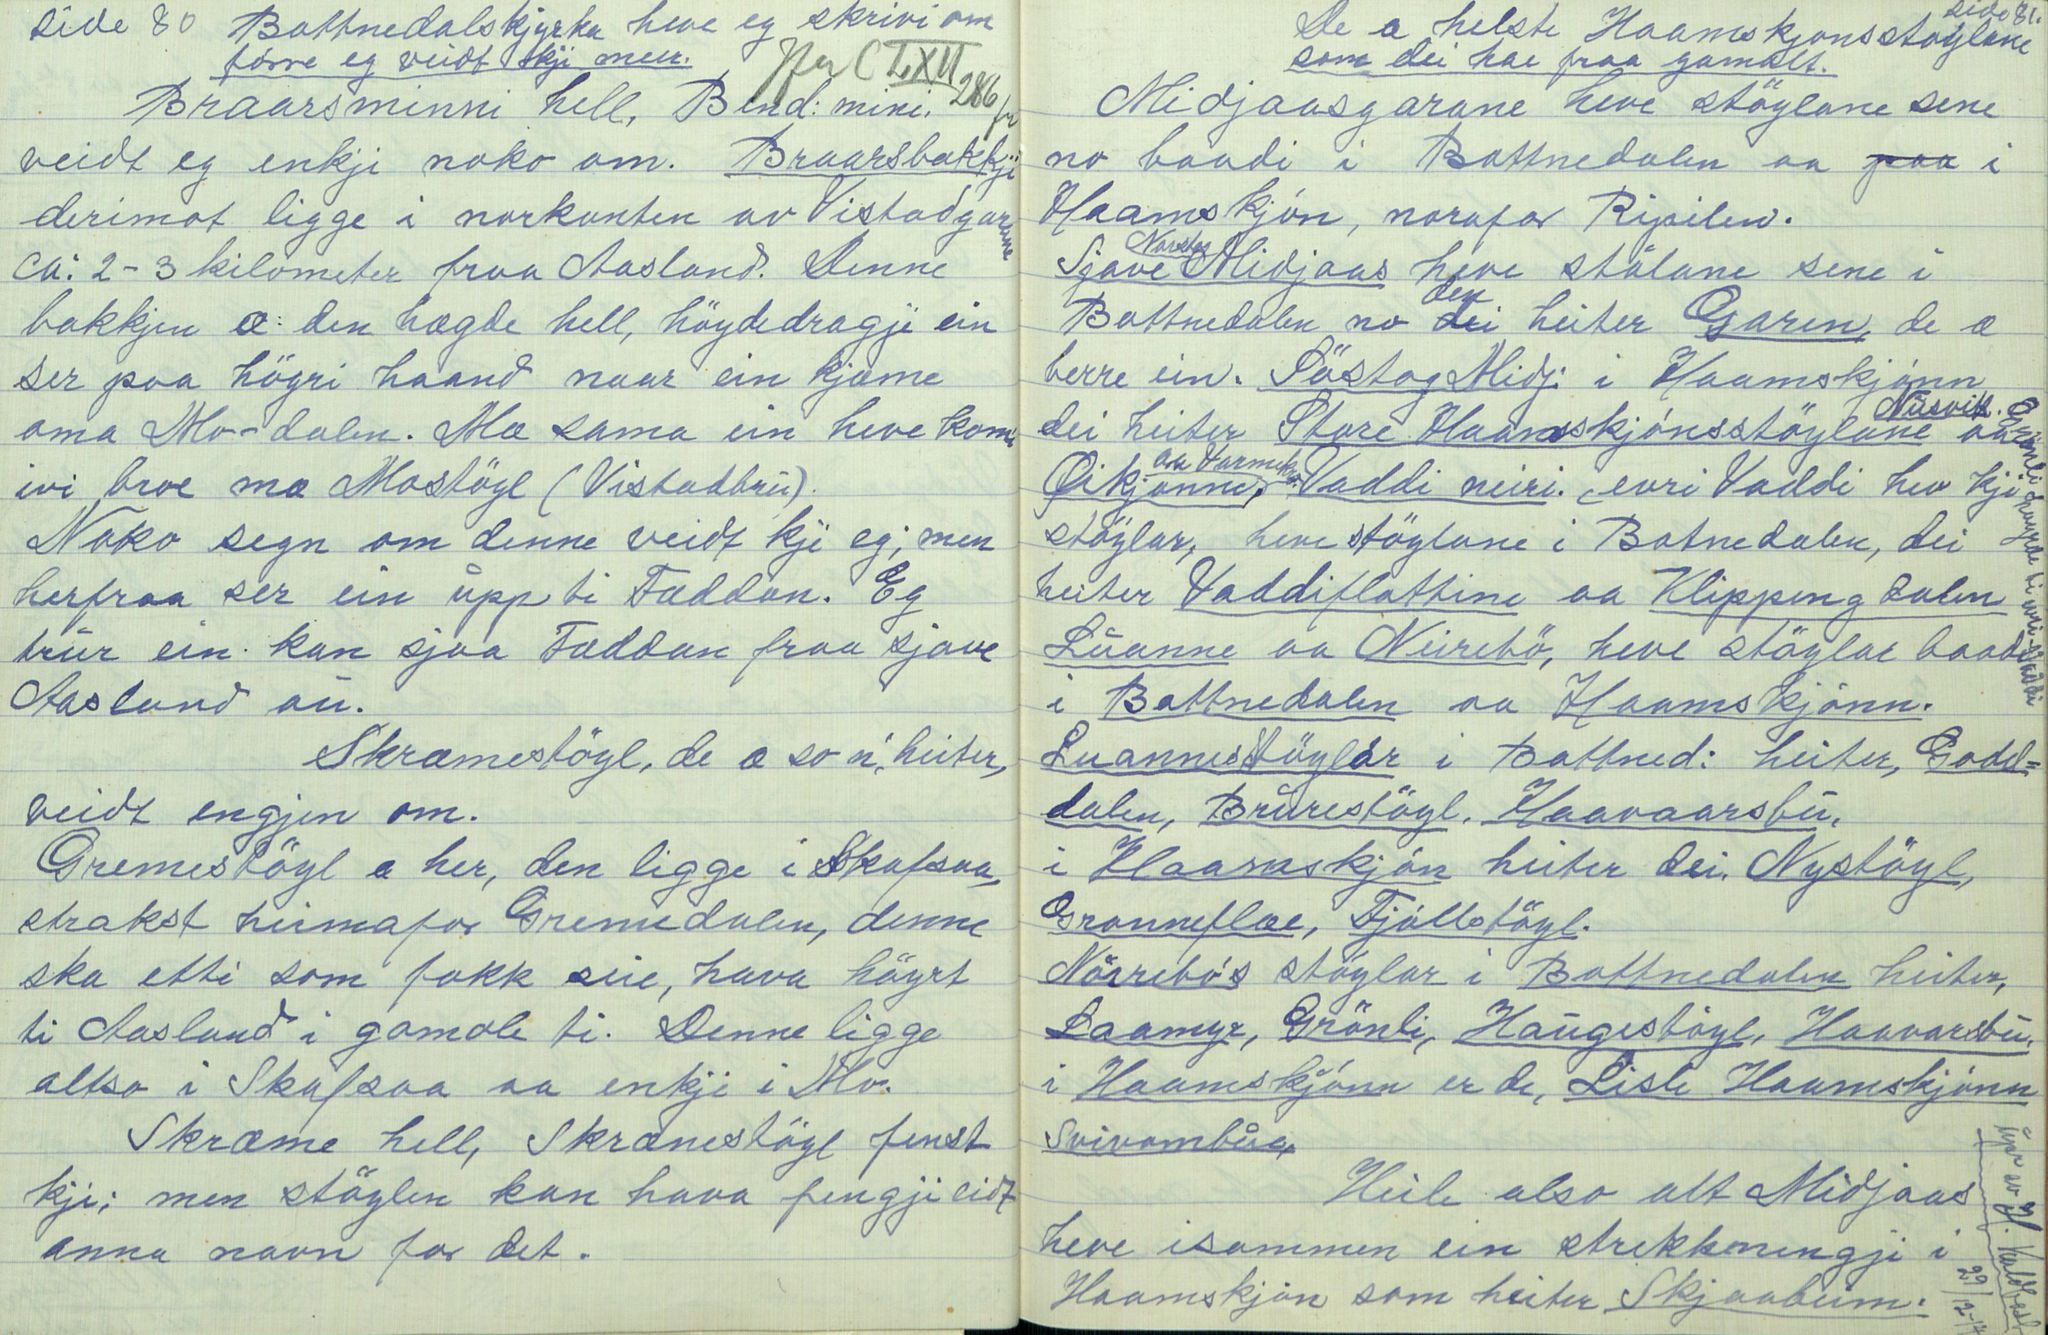 side 80 Bottnedalskjyrka heve eg skrivi om
förre eg veidt kji meir.
Jfr C LXII 286 fr
Braarsminni hell, Bend: mini.
veidt eg enkji noko om. Braarsbakkji
derimot ligge i norkanten av Vistadgarane
ca: 2-3 kilometer fraa Aasland. Denne
bakkjen æ: den hægde hell, höydedragji ein
ser paa högri haand naar ein kjæme
oma Mo-dalen. Mæ sama ein heve kome
ivi broe mæ Mostöyl (Vistadbrú).
Noko segn om denne veidt kji eg; men
herfraa ser ein úpp ti Fæddan. Eg
trúr ein kan sjaa Fæddan fraa sjave
Aasland aú.
Skræmestöyl, de æ so n', heiter,
veidt engjen om.
Gremestöyl æ her, den ligge i Skafsaa,
strakst heimafor Gremedalen, denne
ska etti som fokk seie, hava höyrt
ti Aasland i gamale ti. Denne ligge
altso i Skafsaa aa enkji i Mo.
Skræme hell, Skrænestöyl finst
kji; men stöylen kan hava fengji eidt
anna navn for det.
side 81.
De æ helste Haamskjønsstöylane
som dei har fraa gamalt.
Midjaasgarane heve stöylane sene
no baadi i Bottnedalen aa paa i
Haamskjón, norafor Ripilen.
Sjave Norstog Midjaas heve stölane sene i
Bottnedalen no den dei heiter Garen, de æ
berre ein. Söstog Midj: i Haamskjónn
dei heiter Store Haamsskjónsstöylane Núsvitt. aa
Øikjønne, aa Varmekjer Vaddi neiri. evri Vaddi hev kji
stöylar, heve stöylane i Botnedalen, dei
heiter Vaddiflottine aa Klippeng dalen
Lúanne aa Neirebö, heve stöylar baade
i Bottnedalen aa Haamskjónn.
Luannestöylar i Bottned: heiter, Godel=
dalen, Brúrestöyl, Haavaarsbú,
i Haamskjón heiter dei. Nystöyl,
Gronneflæe, Fjóllstöyl.
Nörrebó's stöylar i Bottnedalen heiter,
Laamyr, Grönli, Haúgestöyl, Haavarsbú,
i Haamskjónn er de, Lisle Haamskjónn
Svivambúa,
Heile also alt Midjaas
heve isammen ein strekkmengji i
Haamskjón som heiter Skjaabum.
Grönli höyrde ti evri-Vaddi
av H. 29/12-17